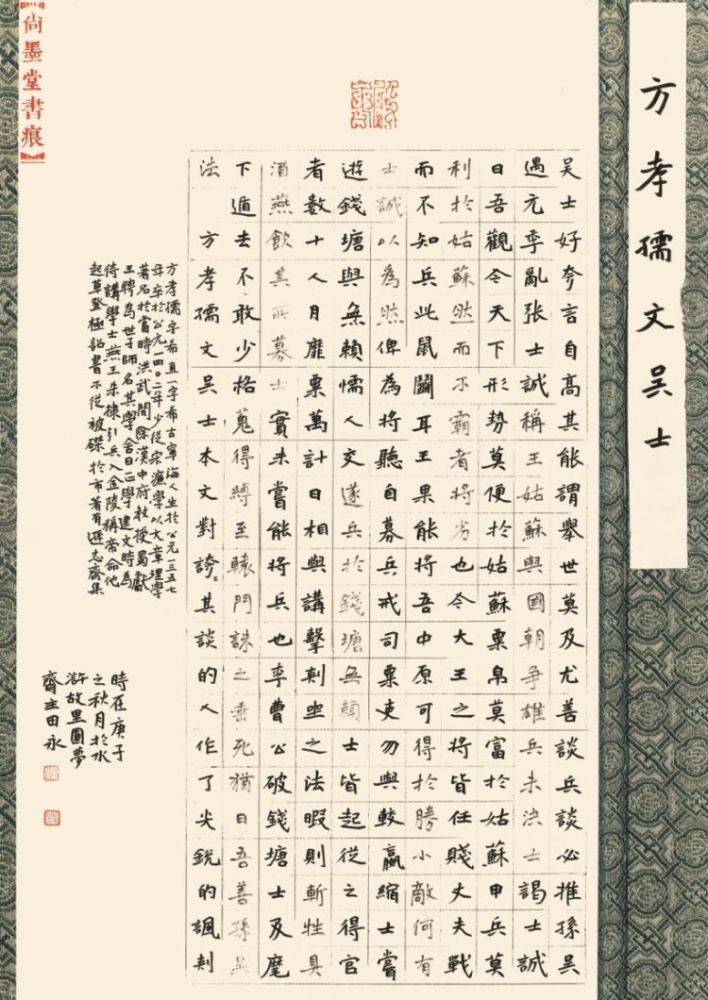 方孝孺文吴士
吴士好夸言自高其能謂舉世莫及尤善談兵談必推孫吴
遇元季亂張士誠稱王姑蘇與國朝争雄兵未决士謁士誠
曰吾觀今天下形勢莫便於姑蘇粟帛莫富於姑蘇甲兵莫
利於姑蘇然而不霸者將劣也今大王之將皆任賤丈夫戰
而不知兵此鼠鬭耳王果能將吾中原可得於勝小敵何有
士誠以為然俾為將聽自募兵戒司粟吏勿與較贏縮士嘗
遊錢塘與無賴懦人交遂兵於錢塘無賴士皆起從之得官
者數十人月靡粟萬計日相與講擊刺坐之法暇則斬牲具
酒燕飲其所募士實未嘗能將兵也李曹公破錢塘士及麾
下遁去不敢少格蒐得縛至轅門誅之垂死猶曰吾善孫吴
法 方孝孺文吴士本文對誇〻其談的人作了尖銳的諷刺
方孝孺字希直一字希古寧海人生於公元一三五七
年卒於公元一四〇二年少從宋濂學以文章理學
著名於當時洪武間除漢中府教授蜀獻
王聘為世子師名其學舍曰正學建文時為
侍講學士燕王朱棣引兵入金陵稱帝命他
起草登極詔書不從被磔於市著有遜志齋集
時在庚子
之秋月於水
滸故里圓夢
齋主田永
尚墨堂書痕